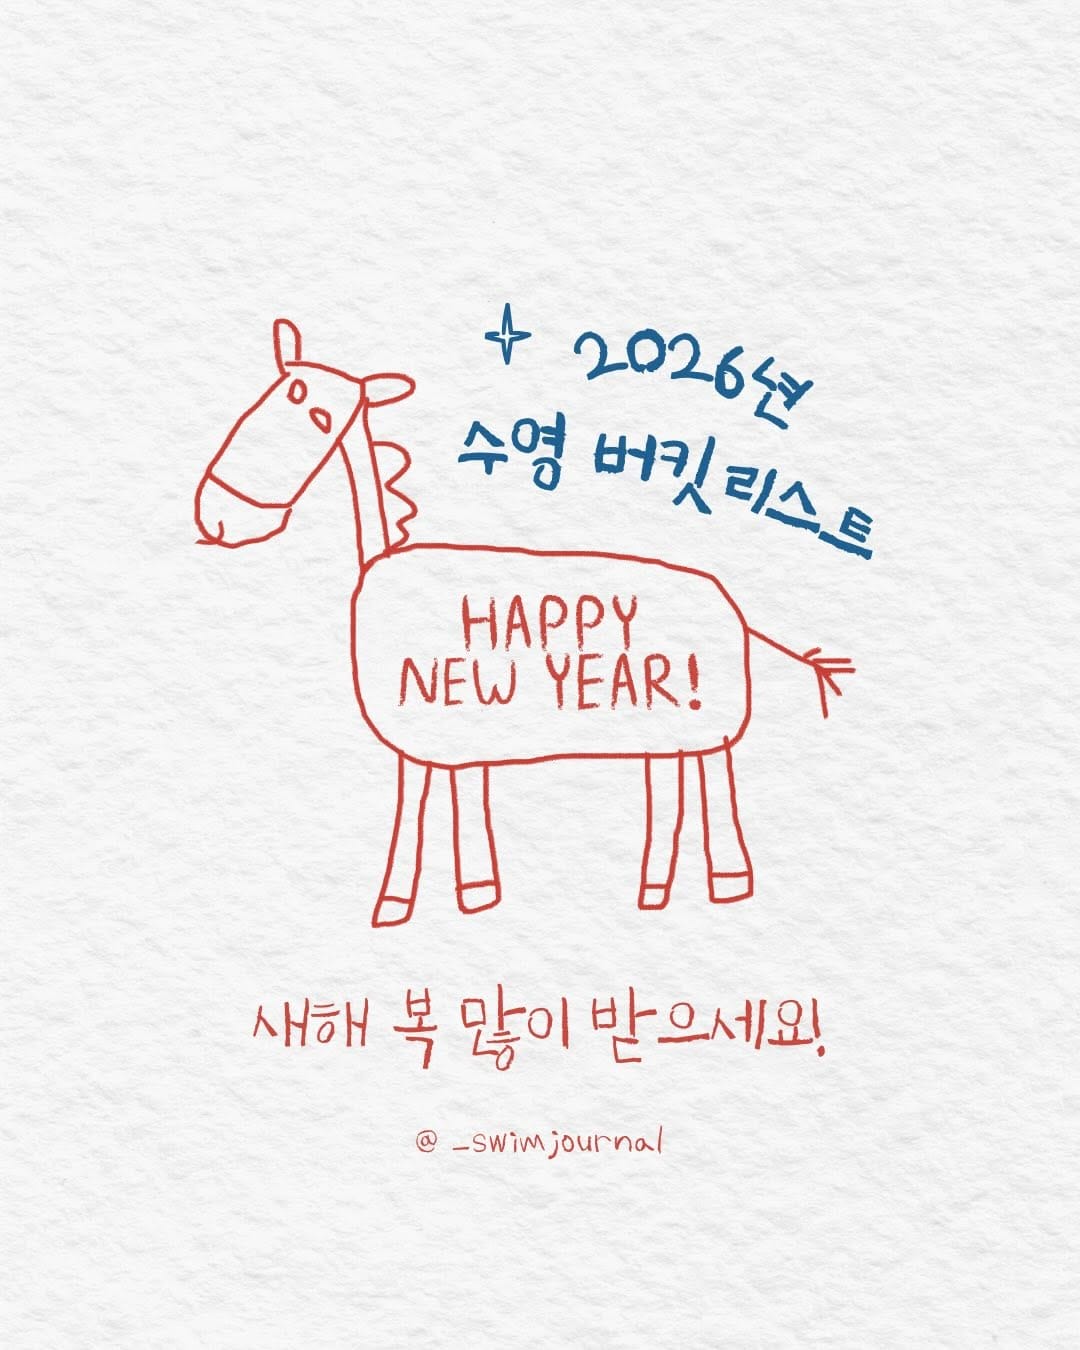 2026년
수영 버킷리스트
HAPPY
NEW YEAR!
새해 복 많이 받으세요!
@_swimjournal